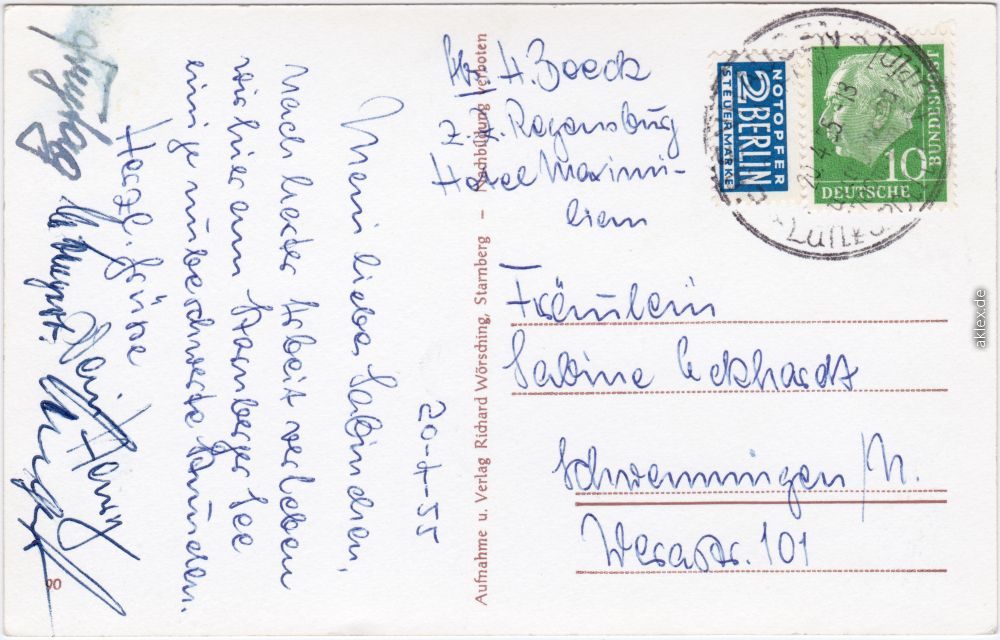 H. Boeck
z. Z. Regensburg
Hotel Maximi-
lian
20-4-55
Mein liebes Sabinchen,
nach harter Arbeit verleben
wir hier am Starnberger See
einige unbeschwerte Stunden.
Herzl. Grüsse
Dein Henry
Fräulein
Sabine Eckhardt
Schwenningen/N.
Werastr. 101
Aufnahme u. Verlag Richard Wörsching, Starnberg – Nachbildung verboten
90
NOTOPFER
2 BERLIN
STEUERMARKE
10
DEUTSCHE
BUNDESPOST
aklex.de